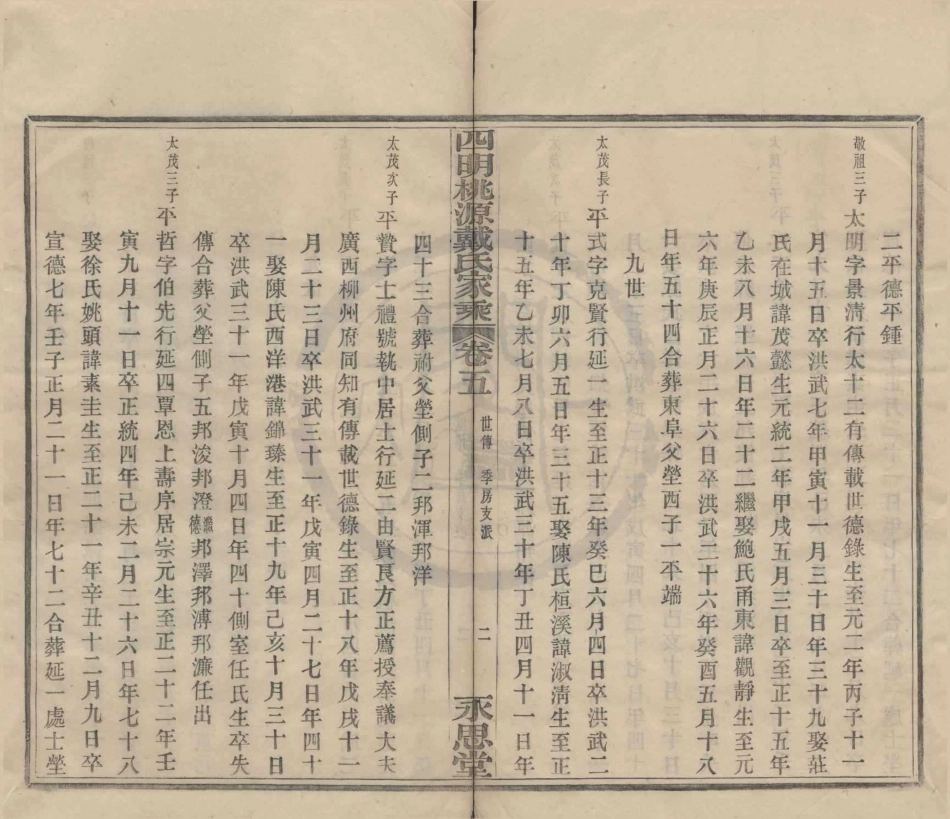 二平德平鍾
敬祖三子太明字景清行太十二有傳載世德錄生至元二年丙子十一
月十五日卒洪武七年甲寅十一月三十日年三十九娶莊
氏在城諱茂懿生元統二年甲戌五月三日卒至正十五年
乙未八月十六日年二十二繼娶鮑氏甬東諱觀靜生至元
六年庚辰正月二十六日卒洪武二十六年癸酉五月十八
日年五十四合葬東阜父塋西子一平端
九世
太茂長子平式字克賢行延一生至正十三年癸巳六月四日卒洪武二
十年丁卯六月五日年三十五娶陳氏桓溪諱淑清生至正
十五年乙未七月八日卒洪武三十年丁丑四月十一日年
四明桃源戴氏家乘 卷五 世傳 季房支派 二 永思堂
四十三合葬祔父塋側子二邦渾邦洋
太茂次子平贊字士禮號執中居士行延二由賢良方正薦授奉議大夫
廣西柳州府同知有傳載世德錄生至正十八年戊戌十一
月二十三日卒洪武三十一年戊寅四月二十七日年四十
一娶陳氏西洋港諱錦瑧生至正十九年己亥十月三十日
卒洪武三十一年戊寅十月四日年四十側室任氏生卒失
傳合葬父塋側子五邦浚邦澄繼德邦澤邦溥邦濂任出
太茂三子平哲字伯先行延四覃恩上壽序居宗元生至正二十二年壬
寅九月十一日卒正統四年己未二月二十六日年七十八
娶徐氏姚頭諱素圭生至正二十一年辛丑十二月九日卒
宣德七年壬子正月二十一日年七十二合葬延一處士塋